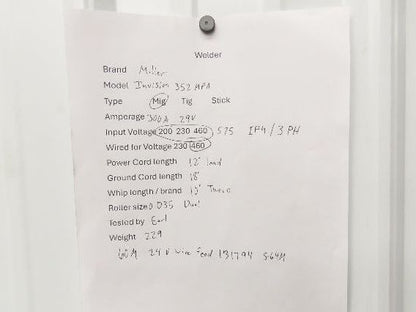 Welder
Brand Miller
Model Invision 352 MPA
Type Mig Tig Stick
Amporage 300A 29V
Input Voltage 200 230 460 575 1PH / 3 PH
Wired for Voltage 230 460
Power Cord length 12' lead
Ground Cord length 18'
Whip length / brand 15'
Roller size 0.035 Dual
Tested by Earl
Weight 229
60M 24 V Wire Feed